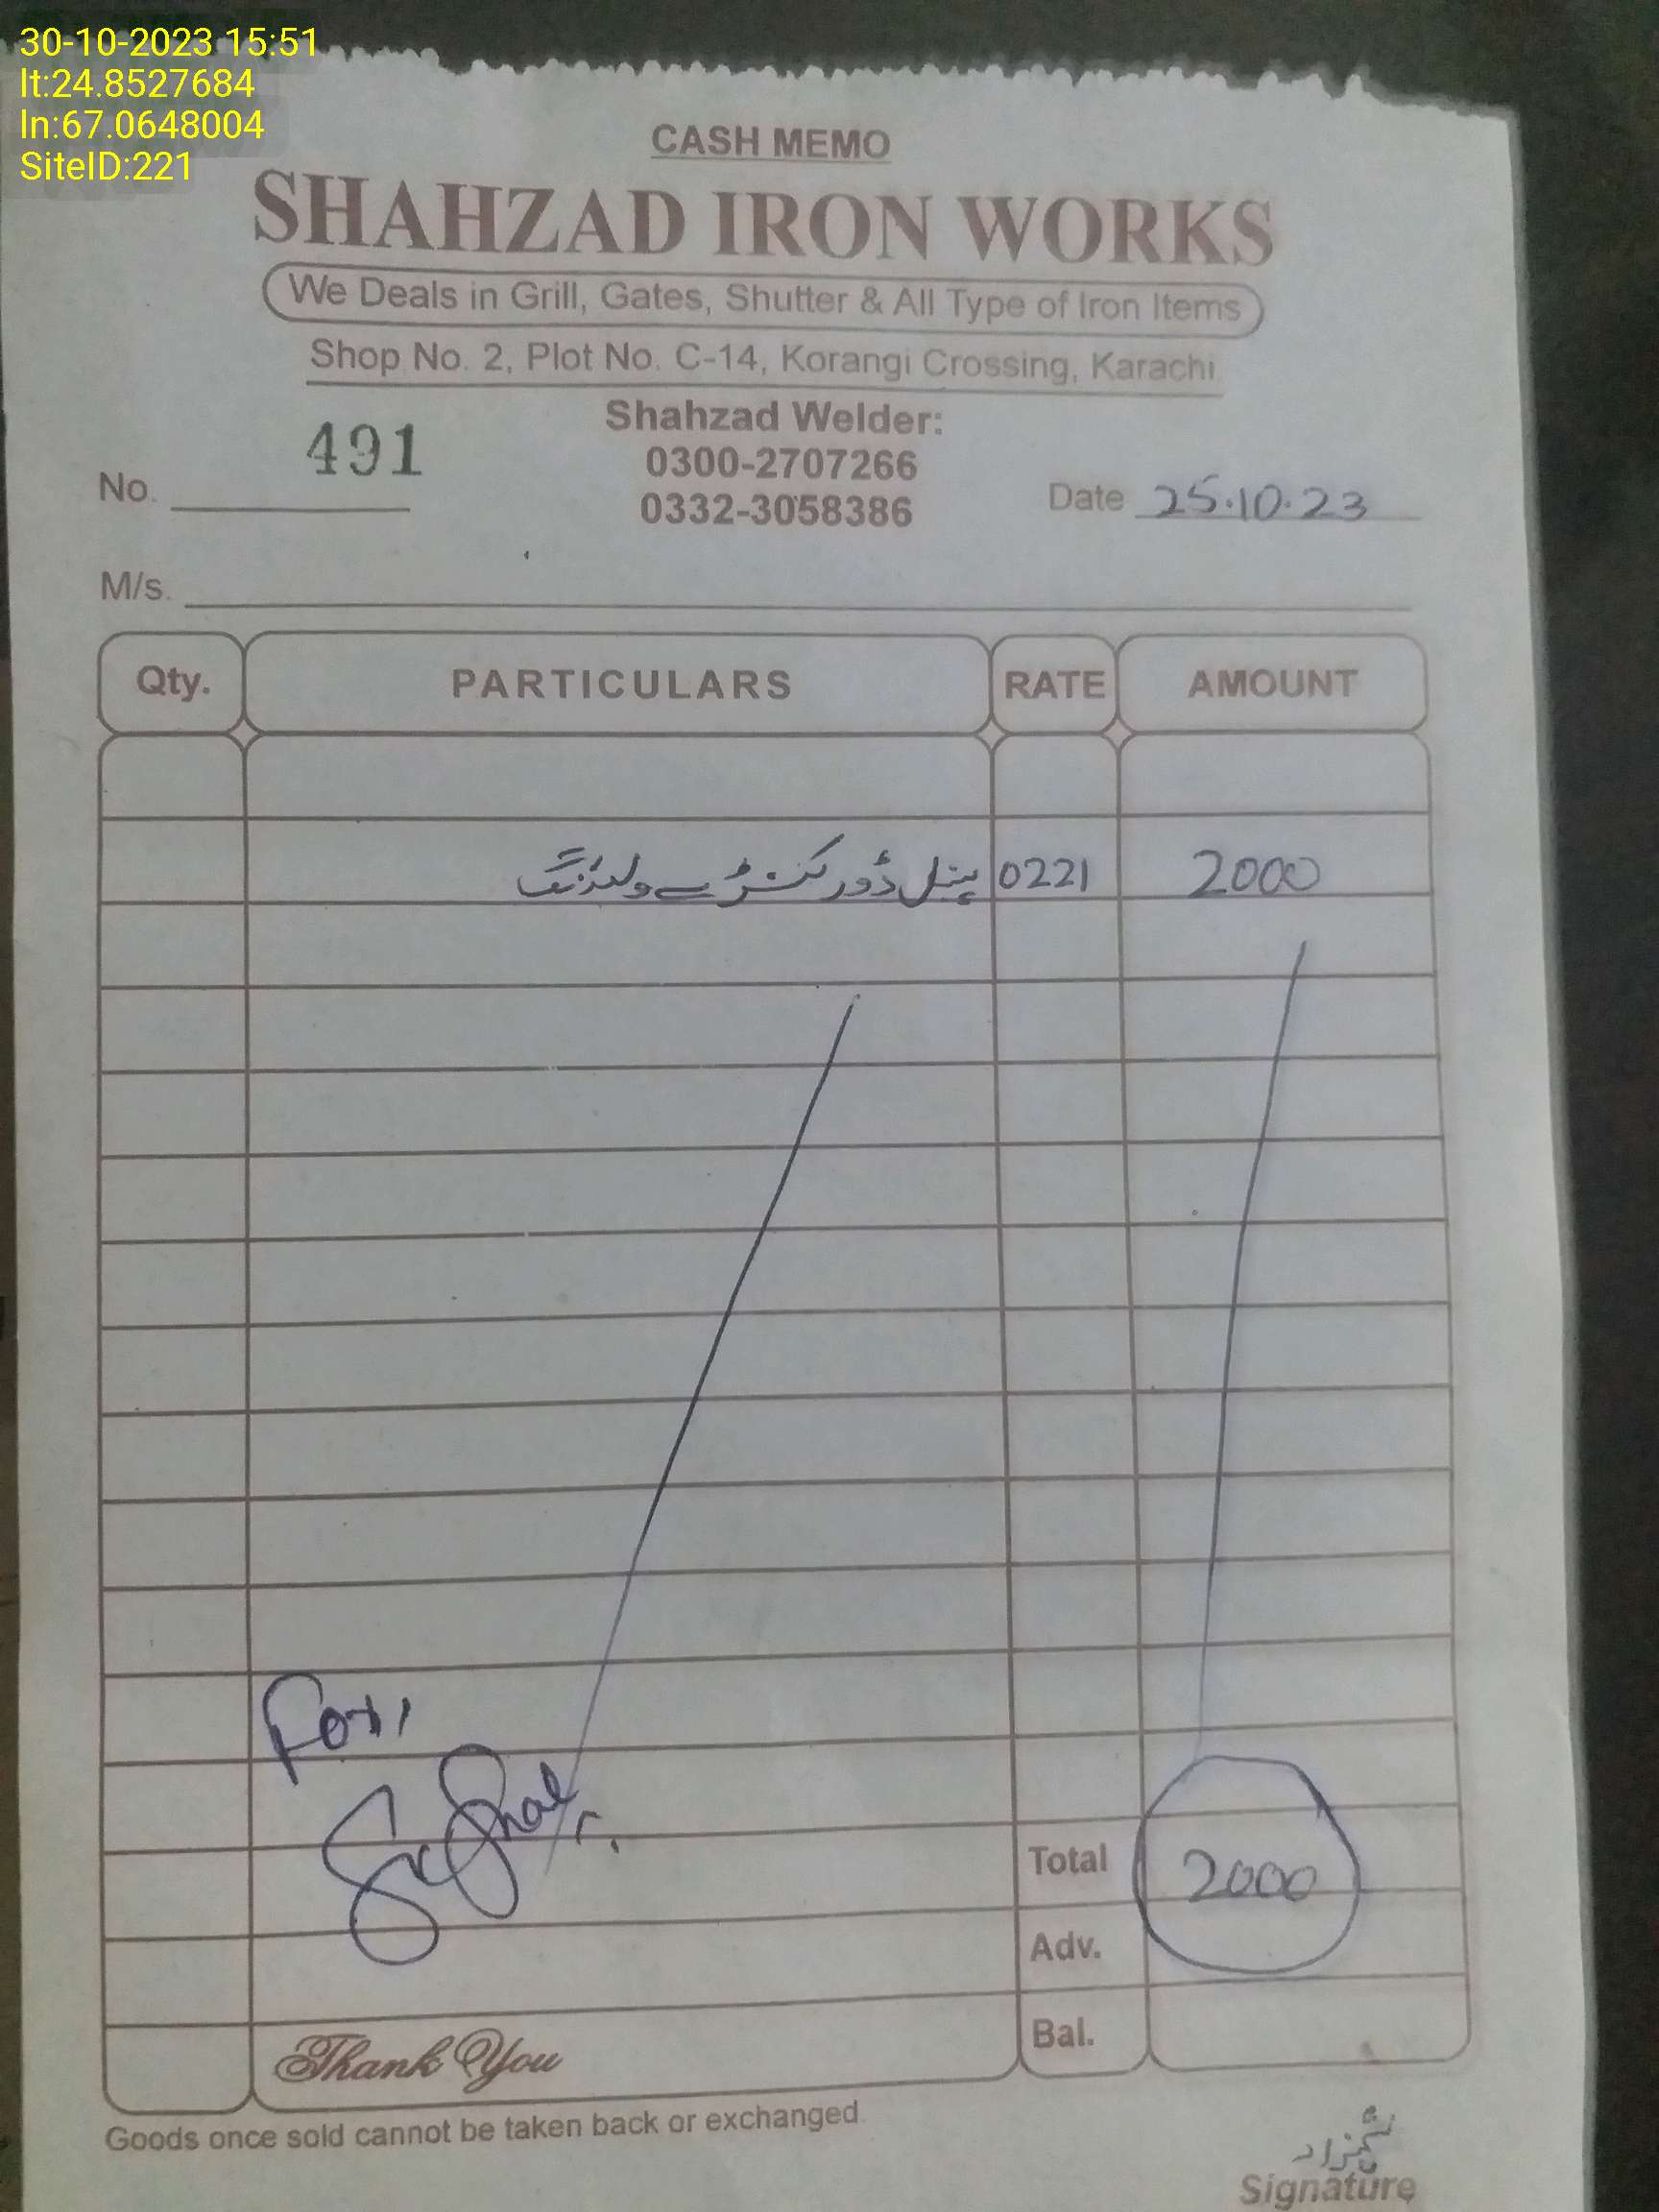 30-10-2023 15:51
lt:24.8527684
ln:67.0648004
SiteID:221
CASH MEMO
SHAHZAD IRON WORKS
We Deals in Grill, Gates, Shutter & All Type of Iron Items
Shop No. 2, Plot No. C-14, Korangi Crossing, Karachi
Shahzad Welder:
0300-2707266
0332-3058386
No. 491
Date 25.10.23
M/s.
Qty. PARTICULARS RATE AMOUNT
پینل ڈور کنڑے ولڈنگ 0221 2000
Total 2000
Adv.
Bal.
Thank You
Goods once sold cannot be taken back or exchanged.
شہزاد
Signature